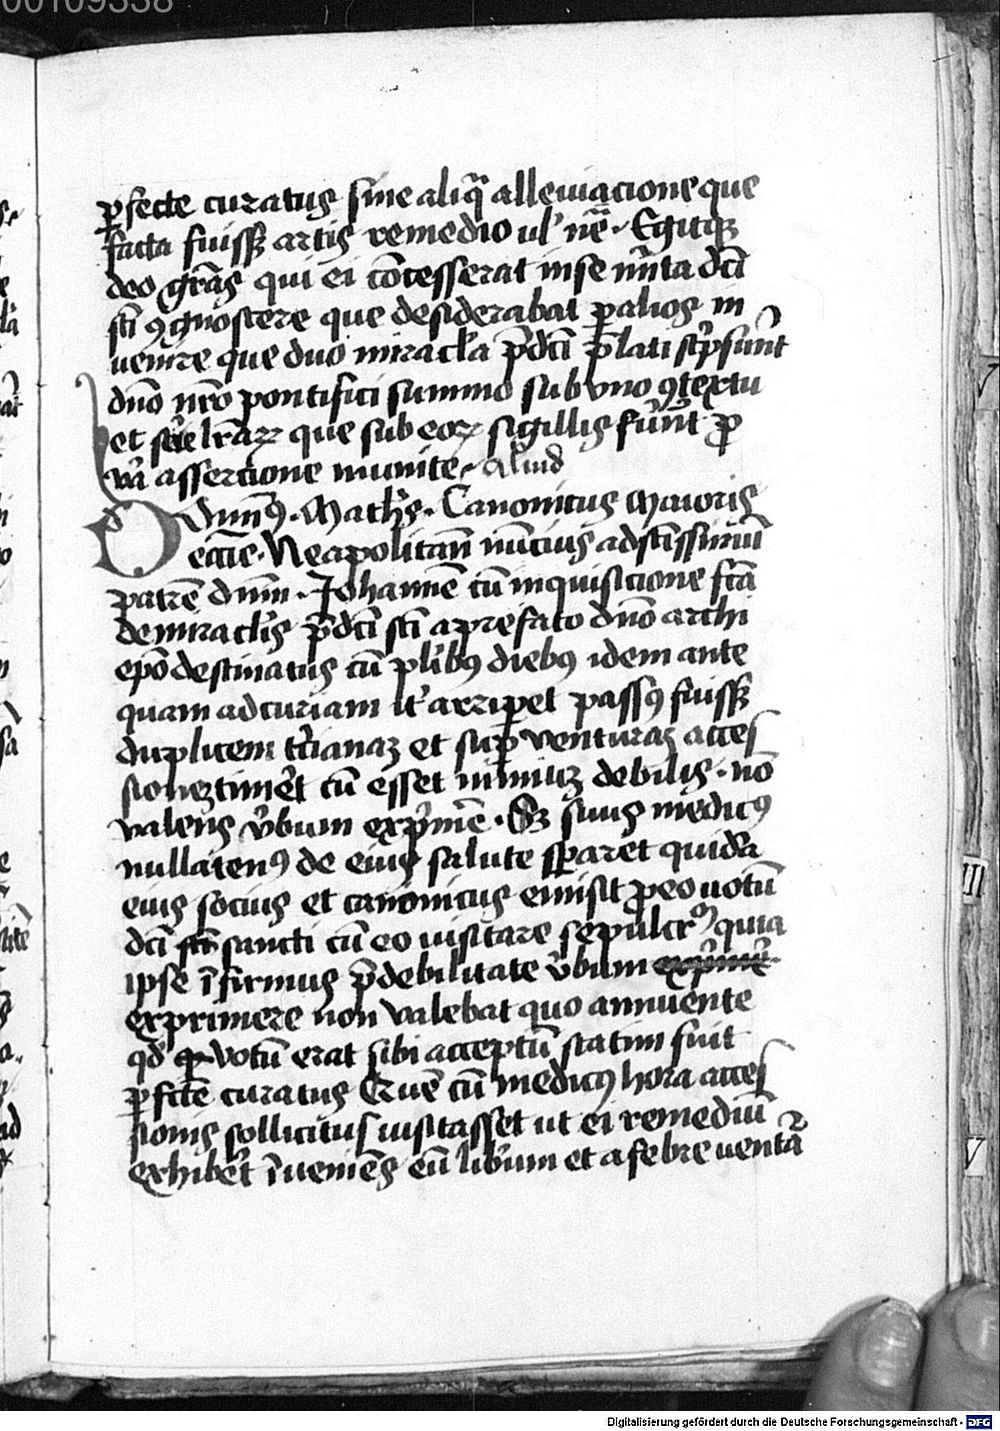 00109338
ꝑfecte curatus sine aliq̄ alleuiacione que
facta fuiss artis remedio ul' nē. Egitqꝫ
deo grās qui ei cōcesserat in se mīta dcī
sci ꝯgnoscere que desiderabat ꝑ alios in
uenire que duo miracl'a p̄dci p̄lati sc̄psūnt
dnō nrō pontifici summo sub vno ꝯtextu
et l'raꝝ que sub eoꝝ sigillis fūnt ꝓ
assercione munite. Aliud
Dnūs. Mathˢ. Canonicus Maioris
eccīe. Neapolitan nūcius ad scissimū
patrē dnm. Johannē cū inquisicione fcā
de miraclis p̄dci sci a prefato dnō archi
epō destinatus cū pl'ibꝰ diebꝰ idem ante
quam ad curiam it' arriꝑet passꝰ fuiss
duplicem tcianaꝫ et suꝑ venturas acces
siones timet cū esset nimiuꝫ debilis. nō
valens v̓bum exp̓mē. Sꝫ suus medicꝰ
nullatenꝰ de eius salute sꝑaret quidā
eius socius et canonicus emisit ꝓ eo uotū
dci sci sancti cū eo uisitare sepulcrū quia
ipse īfirmus p̄ debilitate v̓bum exp̓mē
exprimere non valebat quo annuente
qd' ꝙ votū erat sibi acceptū statim fuit
ꝑfcē curatus Quē cū medicꝰ hora acces
sionis sollicitus uisitasset ut ei remediū
exhibet īueniēs eū lib'um et a febre ventā
V
III
V
Digitalisierung gefördert durch die Deutsche Forschungsgemeinschaft - DFG